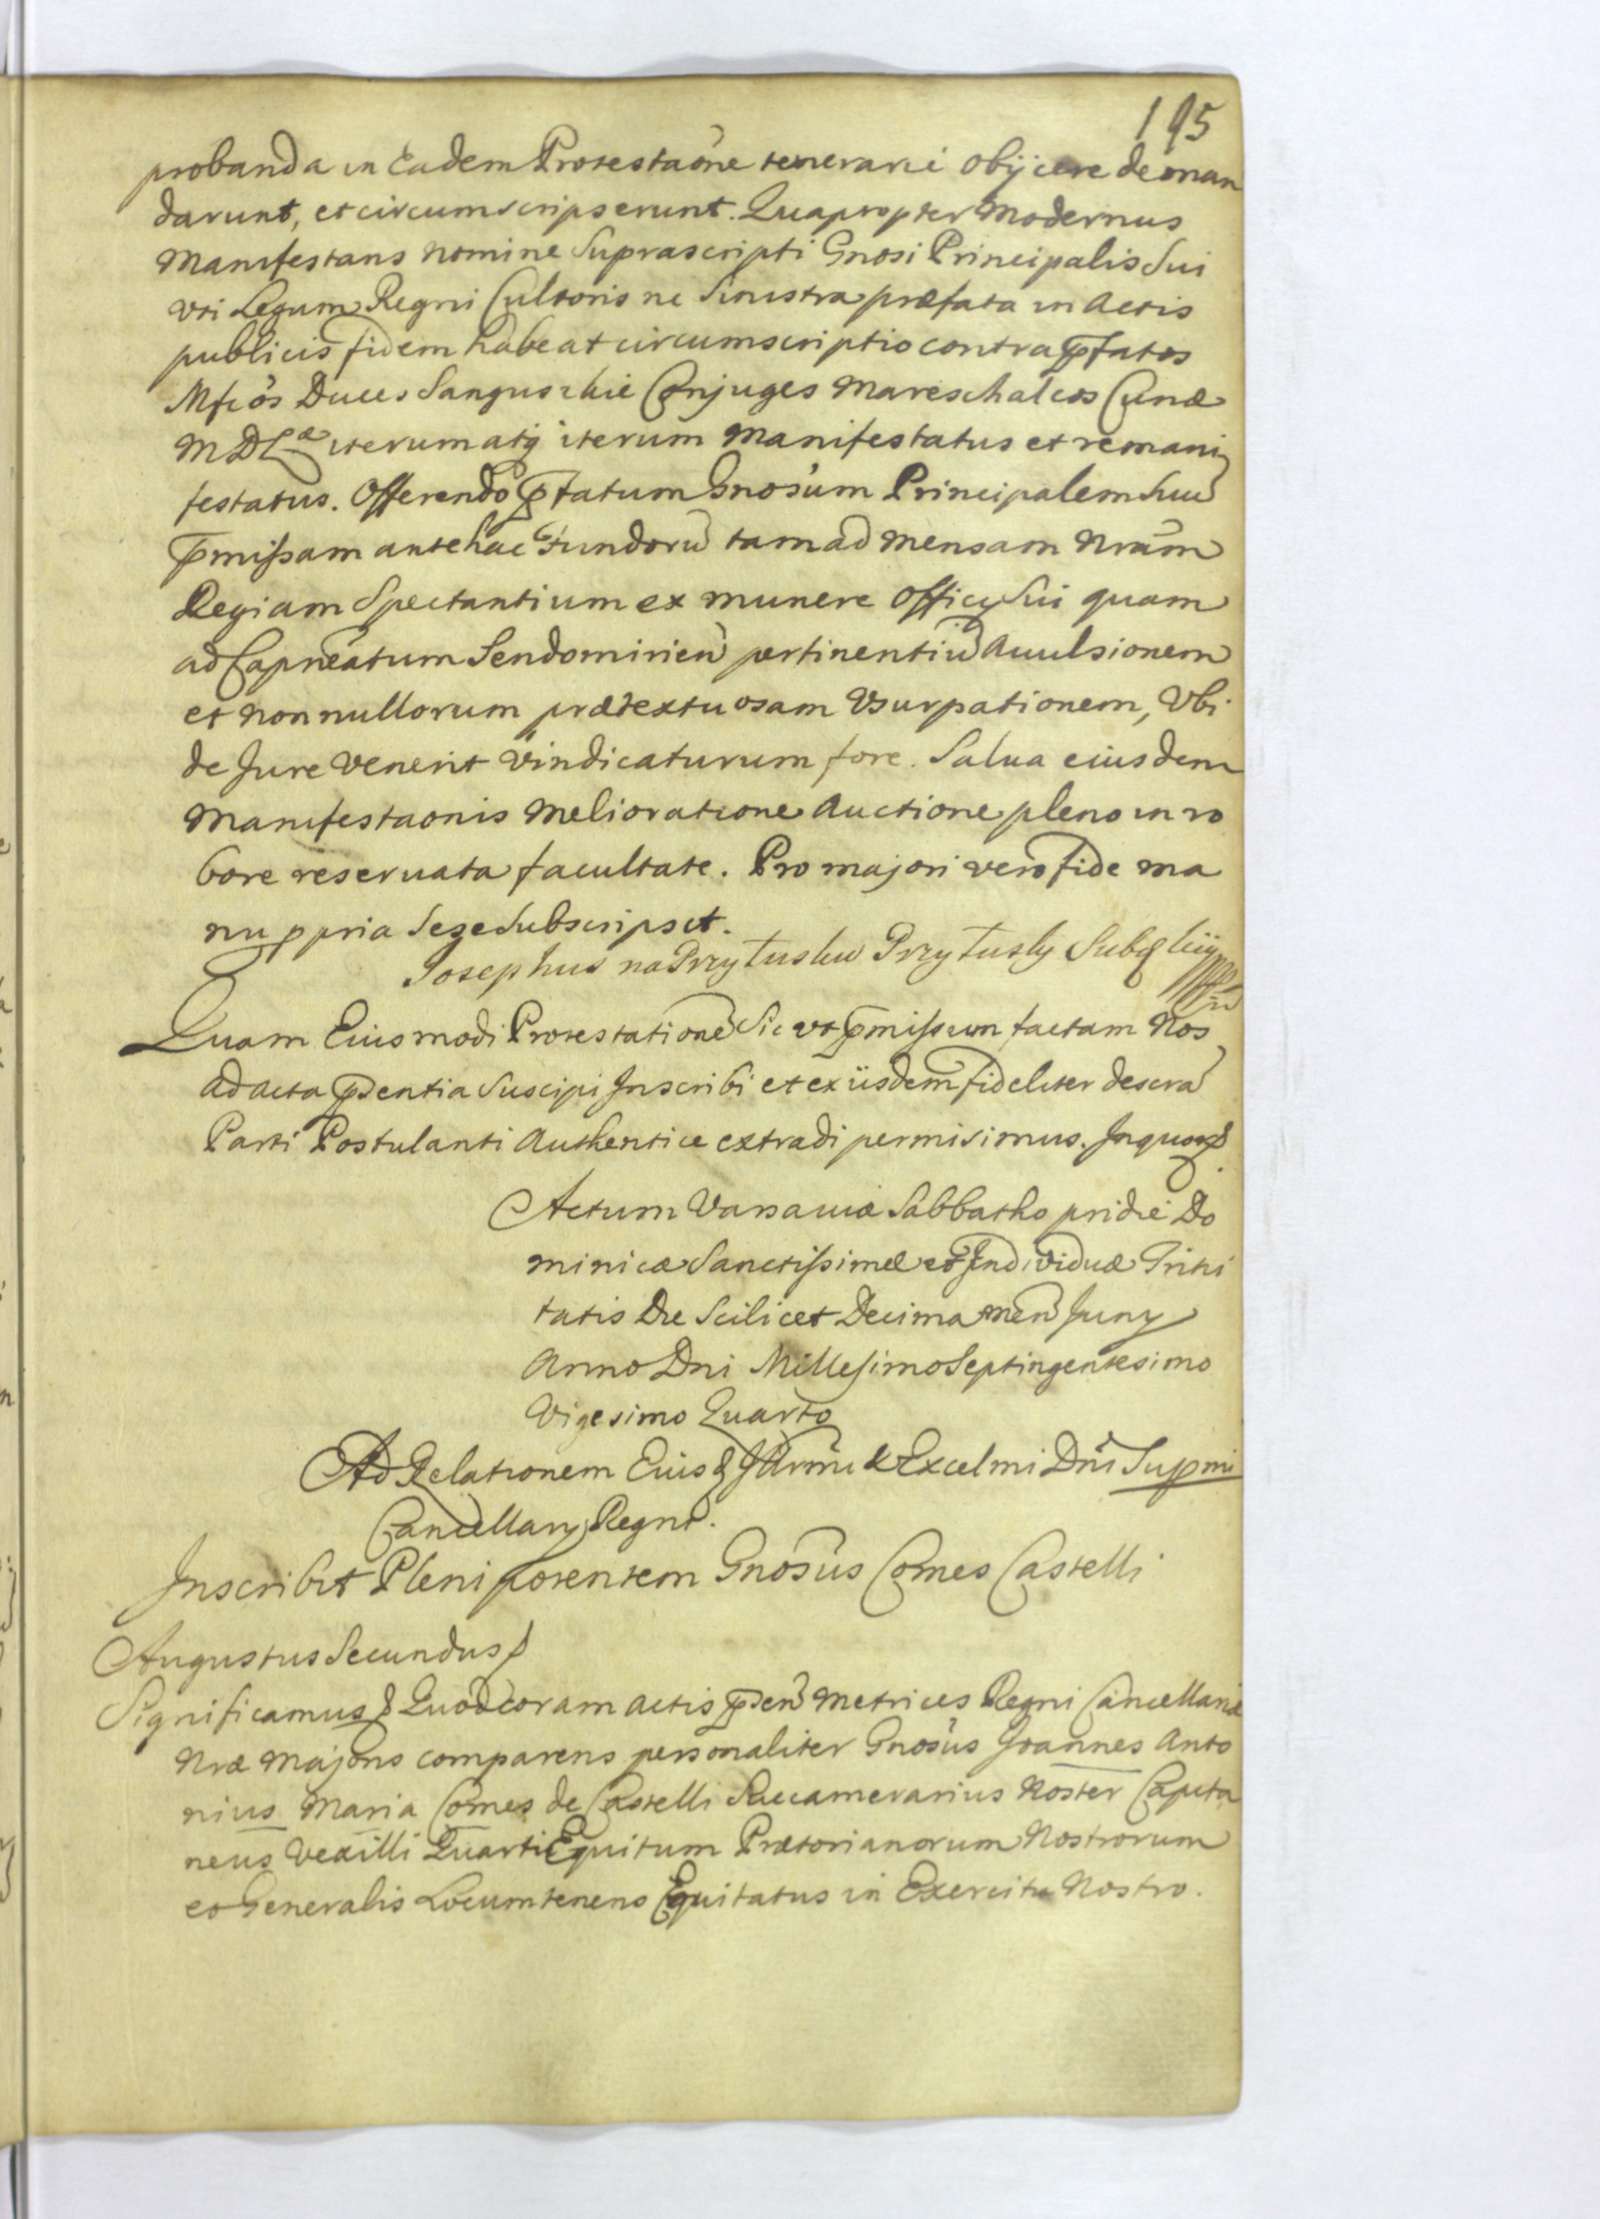 195
probanda in Eadem Protestaõne temerarie obijcere deman
darunt, et circumscripserunt. Quapropter Modernus
Manifestans nomine Suprascripti Gnosi Principalis Sui
vti Legum Regni Cultoris ne Sinistra præfata in Actis
publicis fidem habeat circumscriptio contra p̄fatos
Mfcos Duces Sanguszkie Conjuges Mareschalcos Curiæ
M D Læ iterum atq̃ iterum Manifestatus et remani
festatus. Offerendo p̄fatum Gnosum Principalem Suũ
p̄missam antehac Fundorũ tam ad Mensam Nrãm
Regiam Spectantium ex munere Officy Sui quam
ad Capneatum Sendomirien̄ pertinentiũ Auulsionem
et non nullorum prætextuosam Vsurpationem, Vbi
de Jure Venerit Vindicaturum fore. Salua eiusdem
Manifestaonis Melioratione Auctione pleno in ro
bore reseruata facultate. Pro majori vero fide ma
nu ppria Sese Subscripsit.
Josephus na Przytusku Przytusky
Quam Eiusmodi Protestationẽ Sic vt p̄missum factam Nos
ad acta p̄sentia Suscipi Inscribi et ex iisdem fideliter descra
Parti Postulanti Authentice extradi permisimus. In quor
Actum Varsauiæ Sabbatho pridie Do
minicæ Sanctissimæ et Individuæ Trini
tatis Die Scilicet Decima Men̄ Juny
Anno Dni Millesimo Septingentesimo
Vigesimo Quarto
Ad Relationem Eiusd Illrmi & Excelmi Dni Supmi
Cancellary Regni.
Inscribit Plenipotentem Gnosus Comes Castelli
Augustus Secundus
Significamus Quod coram actis p̄sen̄ Metrices Regni Cancellariæ
Nræ Majoris comparens personaliter Gnosus Joannes Anto
nius Maria Comes de Castelli Succamerarius Noster Capita
neus Vexilli Quarti Equitum Prætorianorum Nostrorum
eo Generalis Locumtenens Equitatus in Exercitu Nostro.